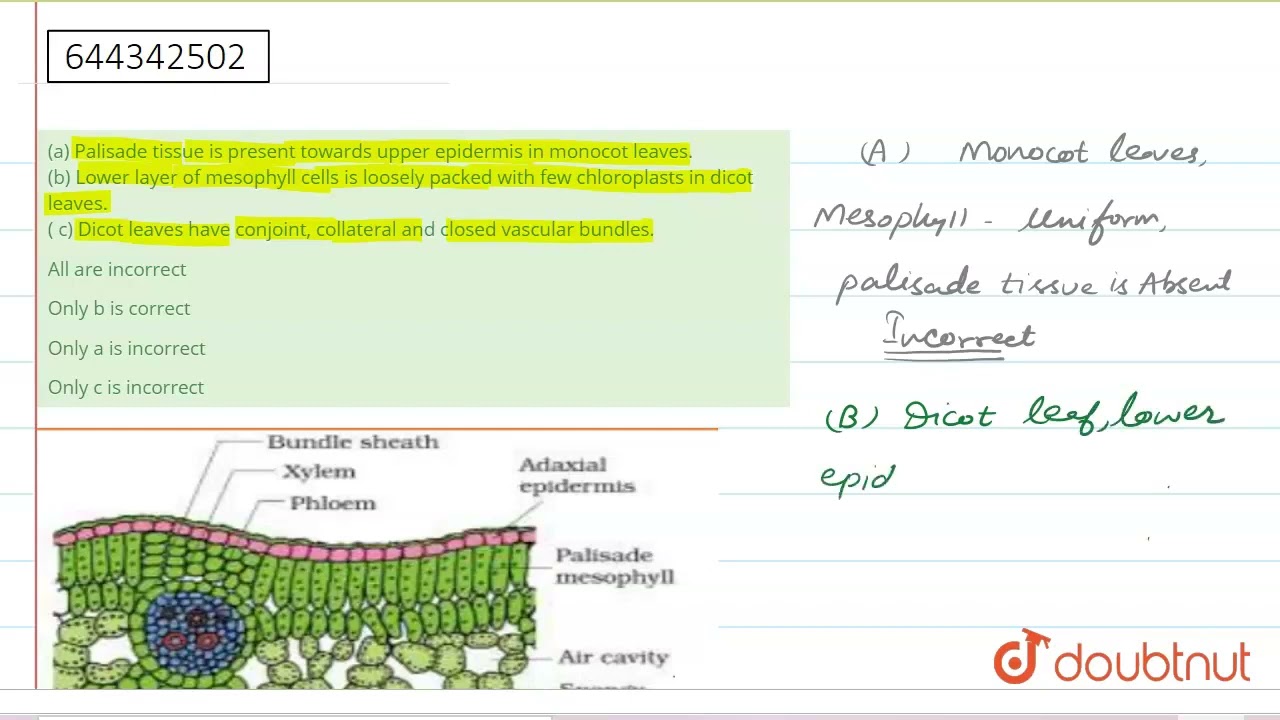 644342502
(a) Palisade tissue is present towards upper epidermis in monocot leaves.
(b) Lower layer of mesophyll cells is loosely packed with few chloroplasts in dicot
leaves.
( c) Dicot leaves have conjoint, collateral and closed vascular bundles.
All are incorrect
Only b is correct
Only a is incorrect
Only c is incorrect
Bundle sheath
Xylem
Phloem
Adaxial
epidermis
Palisade
mesophyll
Air cavity
(A) Monocot leaves,
Mesophyll - uniform,
palisade tissue is Absent
Incorrect
(B) Dicot leaf, lower
epid
doubtnut